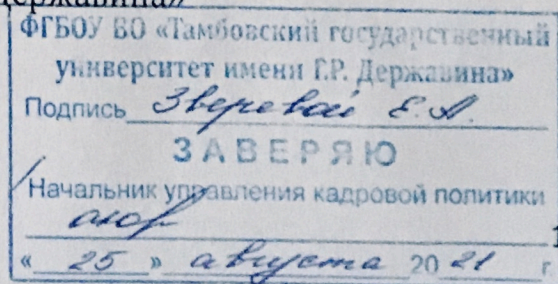 Державина»
ФГБОУ ВО «Тамбовский государственный
университет имени Г.Р. Державина»
Подпись Зверевой Е.А.
ЗАВЕРЯЮ
Начальник управления кадровой политики
1
« 25 » августа 20 21 г